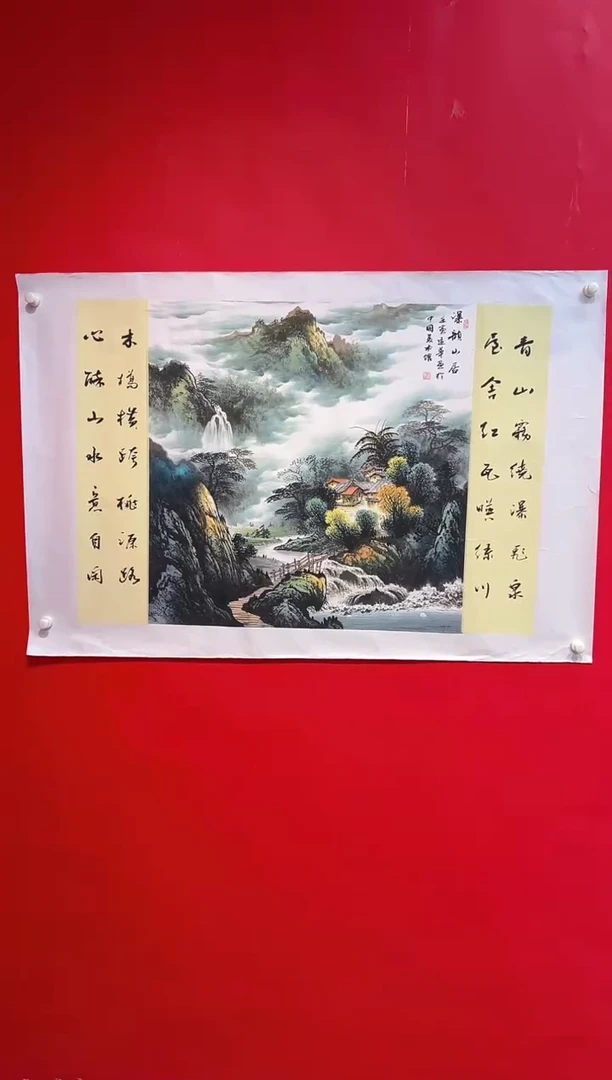 青山霧繞瀑飛泉
屋舍紅瓦暎綠川
瀑韻山居
中國美术馆
木橋横跨桃源路
心醉山水意自閑